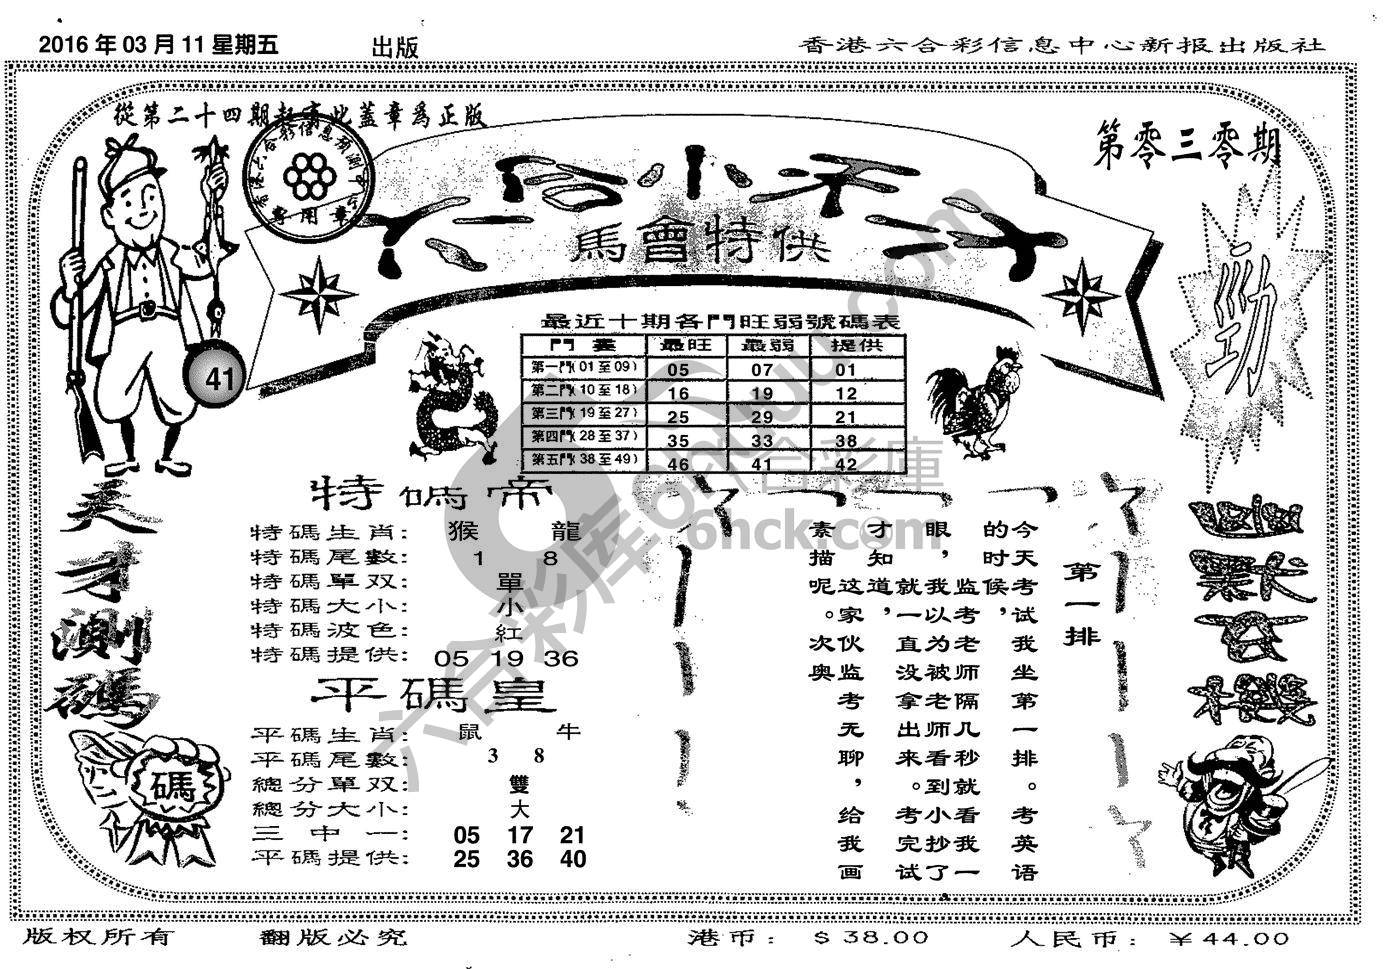 2016 年 03 月 11 星期五
出版
香港六合彩信息中心新报出版社
從第二十四期起寄此蓋章為正版
香港六合彩信息預測中心
專用章
第零三零期
六合小天才
馬會特供
勁
41
最近十期各門旺弱號碼表
門 蠹 最旺 最弱 提供
第一門( 01 至 09 ) 05 07 01
第二門( 10 至 18 ) 16 19 12
第三門( 19 至 27 ) 25 29 21
第四門( 28 至 37 ) 35 33 38
第五門( 38 至 49 ) 46 41 42
天才測碼
特碼帝
特碼生肖: 猴 龍
特碼尾數: 1 8
特碼單双: 單
特碼大小: 小
特碼波色: 紅
特碼提供: 05 19 36
平碼皇
平碼生肖: 鼠 牛
平碼尾數: 3 8
總分單双: 雙
總分大小: 大
三中一: 05 17 21
平碼提供: 25 36 40
碼
第一排
今天考试我坐第一排。考英语
的时候,监考老师隔几秒就看我一
眼,我以为被老师看到小抄了
就一直没拿出来。考完试
才知道,
这家伙监考无聊,给我画
素描呢。次奥
六合彩库
六合彩庫
6hck.com
版权所有
翻版必究
港币: $ 38.00
人民币: ¥ 44.00